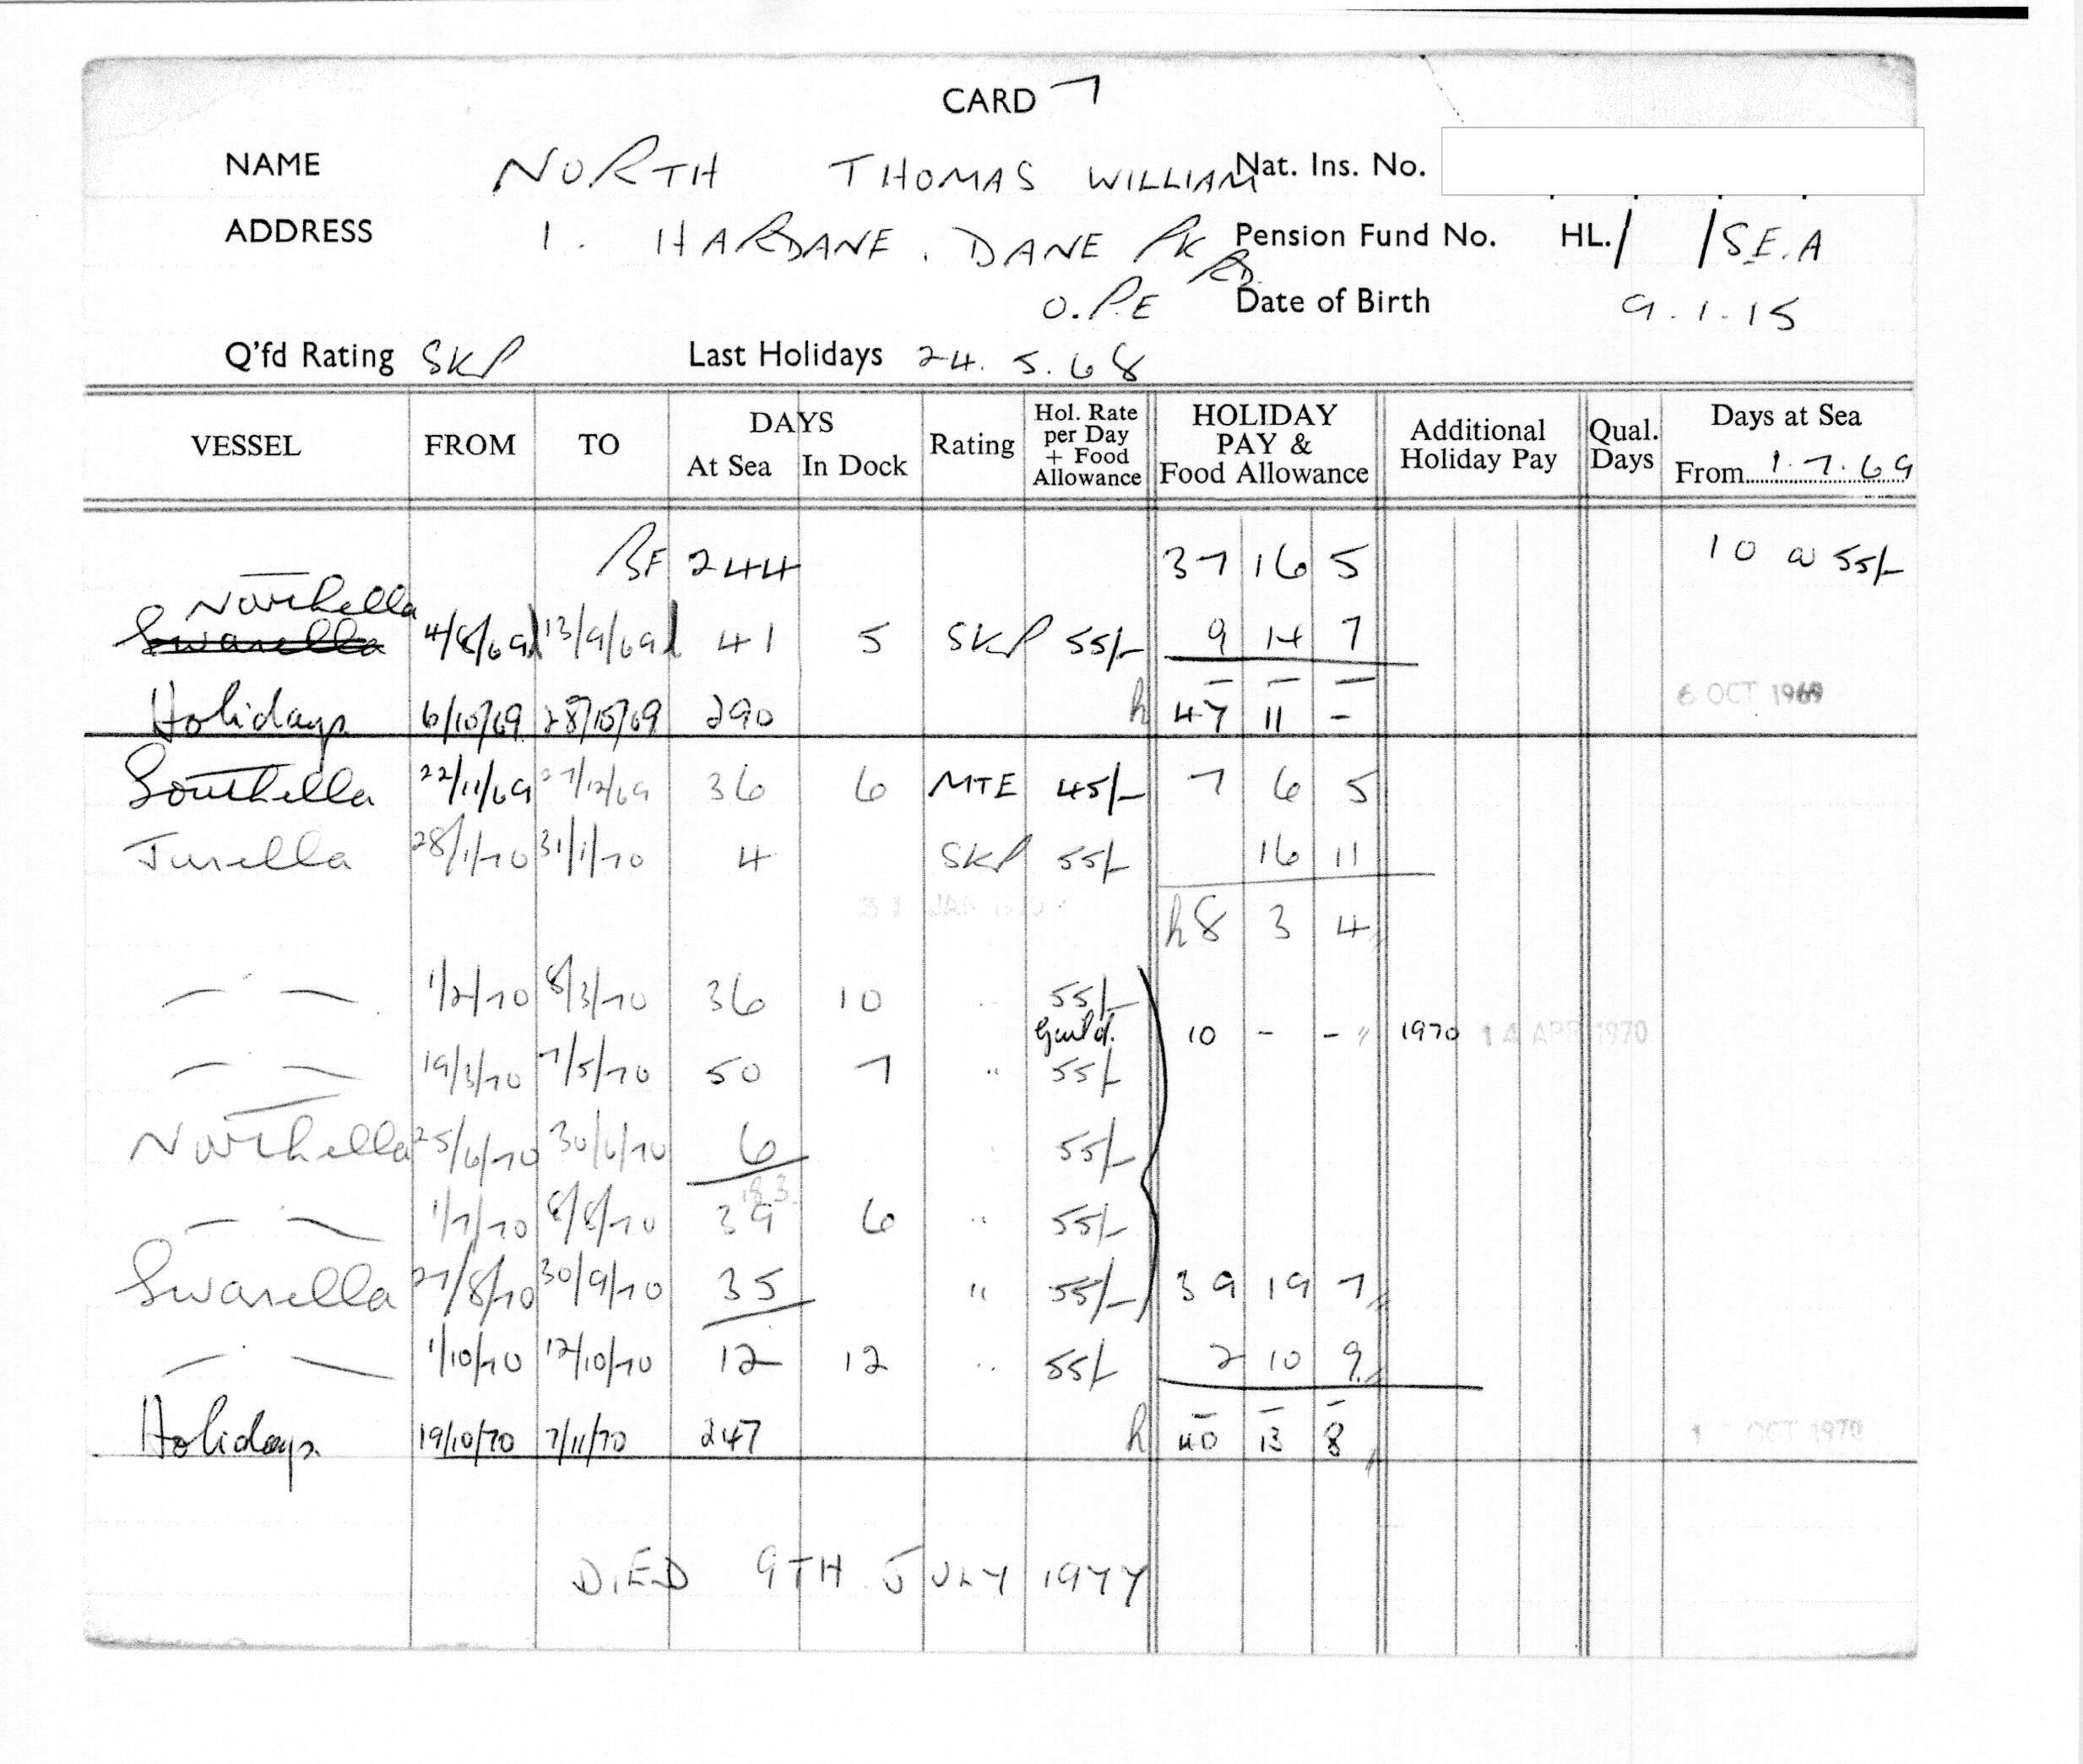 CARD 7
NAME NORTH THOMAS WILLIAM Nat. Ins. No.
ADDRESS 1. HARDANE. DANE PK RD. Pension Fund No. HL./ /SE.A
O.P.E Date of Birth 9.1.15
Q'fd Rating SKP Last Holidays 24.5.68
VESSEL FROM TO DAYS At Sea In Dock Rating Hol. Rate per Day + Food Allowance HOLIDAY PAY & Food Allowance Additional Holiday Pay Qual. Days Days at Sea From 1.7.69
BF 244 37 16 5 10 @ 55/-
Northella
Swanella 4/8/69 13/9/69 41 5 SKP 55/- 9 14 7
Holidays 6/10/69 28/10/69 290 h 47 11 - 6 OCT 1969
Southella 22/11/69 27/12/69 36 6 MTE 45/- 7 6 5
Junella 28/1/70 31/1/70 4 SKP 55/- 16 11
31 JAN h 8 3 4
— — 1/2/70 8/3/70 36 10 " 55/-
Guild. 10 - - 1970 14 APR 1970
— — 19/3/70 7/5/70 50 7 " 55/-
Northella 25/6/70 30/6/70 6 55/-
183
— — 1/7/70 8/8/70 39 6 " 55/-
Swanella 27/8/70 30/9/70 35 " 55/- 39 19 7
— — 1/10/70 12/10/70 12 12 " 55/- 2 10 9
Holidays 19/10/70 7/11/70 247 h 40 13 8 OCT 1970
DIED 9TH JULY 1977